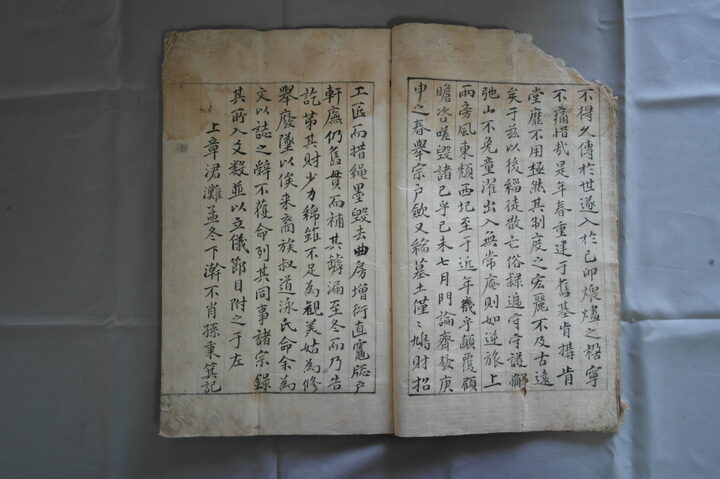 不得久傳於世遂入於己卯煨燼之極寧
不痛惜哉是年春重建于舊基肯搆肯
堂靡不用極然其制度之宏麗不及古遠
矣于玆以後緇徒散亡俗隷遞守守護解
弛山不免童濯出入無常庵則如逆旅上
雨旁風東頹西圮至于近年幾乎顚覆顧
瞻咨嗟毀諸己乎己未七月門論齊發庚
申之春擧宗戶飮又縮墓土僅〻鳩財招
工匠而措繩墨毀去曲房增衍直竈牕戶
軒廡仍舊貫而補其罅漏至冬而乃告
訖第其財少力綿雖不足爲觀美姑爲修
擧廢墜以俟來裔族叔道泳氏命余爲
文以誌之辭不獲命列其同事諸宗錄
其所入文數並以立儀節目附之于左
上章涒灘孟冬下澣不肖孫秉箕記